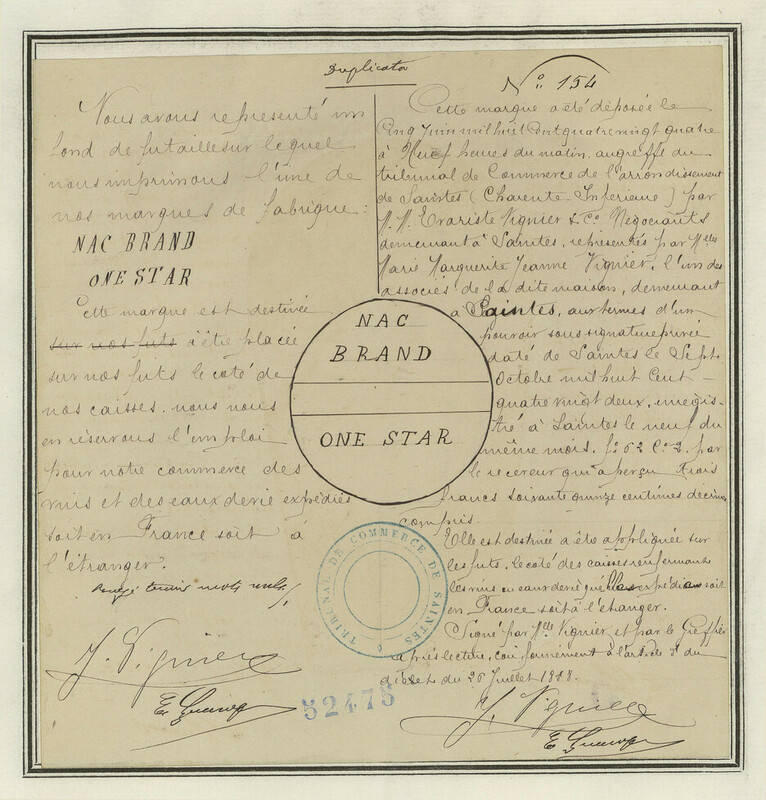 Duplicata
Nous avons représenté un
fond de futaille sur lequel
nous imprimons l'une de
nos marques de fabrique:
NAC BRAND
ONE STAR
Cette marque est destinée
sur nos futs à être placée
sur nos futs le coté de
nos caisses. nous nous
en réservons l'emploi
pour notre commerce des
vins et des eaux de vie expédiés
soit en France soit à
l'étranger.
mots nuls
J. Vignier
NAC
BRAND
ONE STAR
TRIBUNAL DE COMMERCE DE SAINTES
52475
N° 154
Cette marque a été déposée le
Cinq Juin mil huit Cent quatre vingt quatre
à Neuf heures du matin, au greffe du
tribunal de Commerce de l'arrondissement
de Saintes (Charente-Inférieure) par
M.M. Evariste Vignier & Co Négociants
demeurant à Saintes, représentés par Melle
Marie Marguerite Jeanne Vignier, l'un des
associés de la dite maison, demeurant
à Saintes, aux termes d'un
pouvoir sous signature privée
daté de Saintes le Sept
Octobre mil huit Cent
quatre vingt deux, enregis-
tré à Saintes le neuf du
même mois. fo 62 Co 2. par
le receveur qui a perçu Trois
francs soixante quinze centimes décimes
compris.
Elle est destinée a être appliquée sur
les futs, le coté des caisses renfermant
les vins ou eaux de vie expédiés soit
en France soit à l'étranger.
Signé par Melle Vignier et par le Greffier
après lecture, conformément à l'article du
décret du 26 Juillet 1858.
J. Vignier